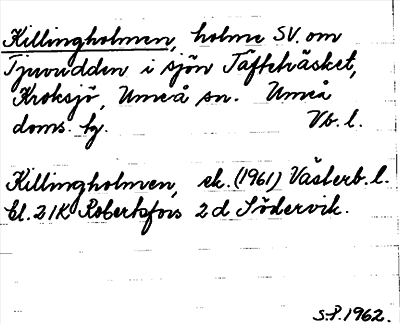 Killingholmen, holme SV. om
Tjuvudden i sjön Täfteträsket,
Kroksjö, Umeå sn. Umeå
doms. hg. Vb. l.
Killingholmen, ek. (1961) Västerb. l.
bl. 21K Robertsfors 2 d Södervik.
S.P. 1962.